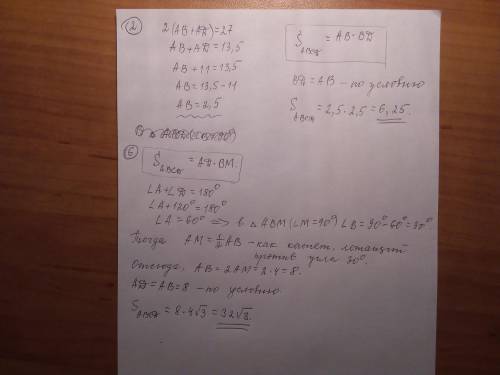 2
2(AB+AD)=27
AB+AD=13,5
AB+11=13,5
AB=13,5-11
AB=2,5
S ABCD = AB·BD
BD=AB – по условию
S ABCD = 2,5·2,5=6,25.
6
S ABCD = AD·BM.
∠A+∠D=180°
∠A+120°=180°
∠A=60° ⇒ в △ABM (∠M=90°) ∠B=90°-60°=30°
Тогда AM=1/2 AB – как катет, лежащий
против угла 30°.
Отсюда, AB=2AM=2·4=8.
AD=AB=8 – по условию
S ABCD = 8·4√3=32√3.